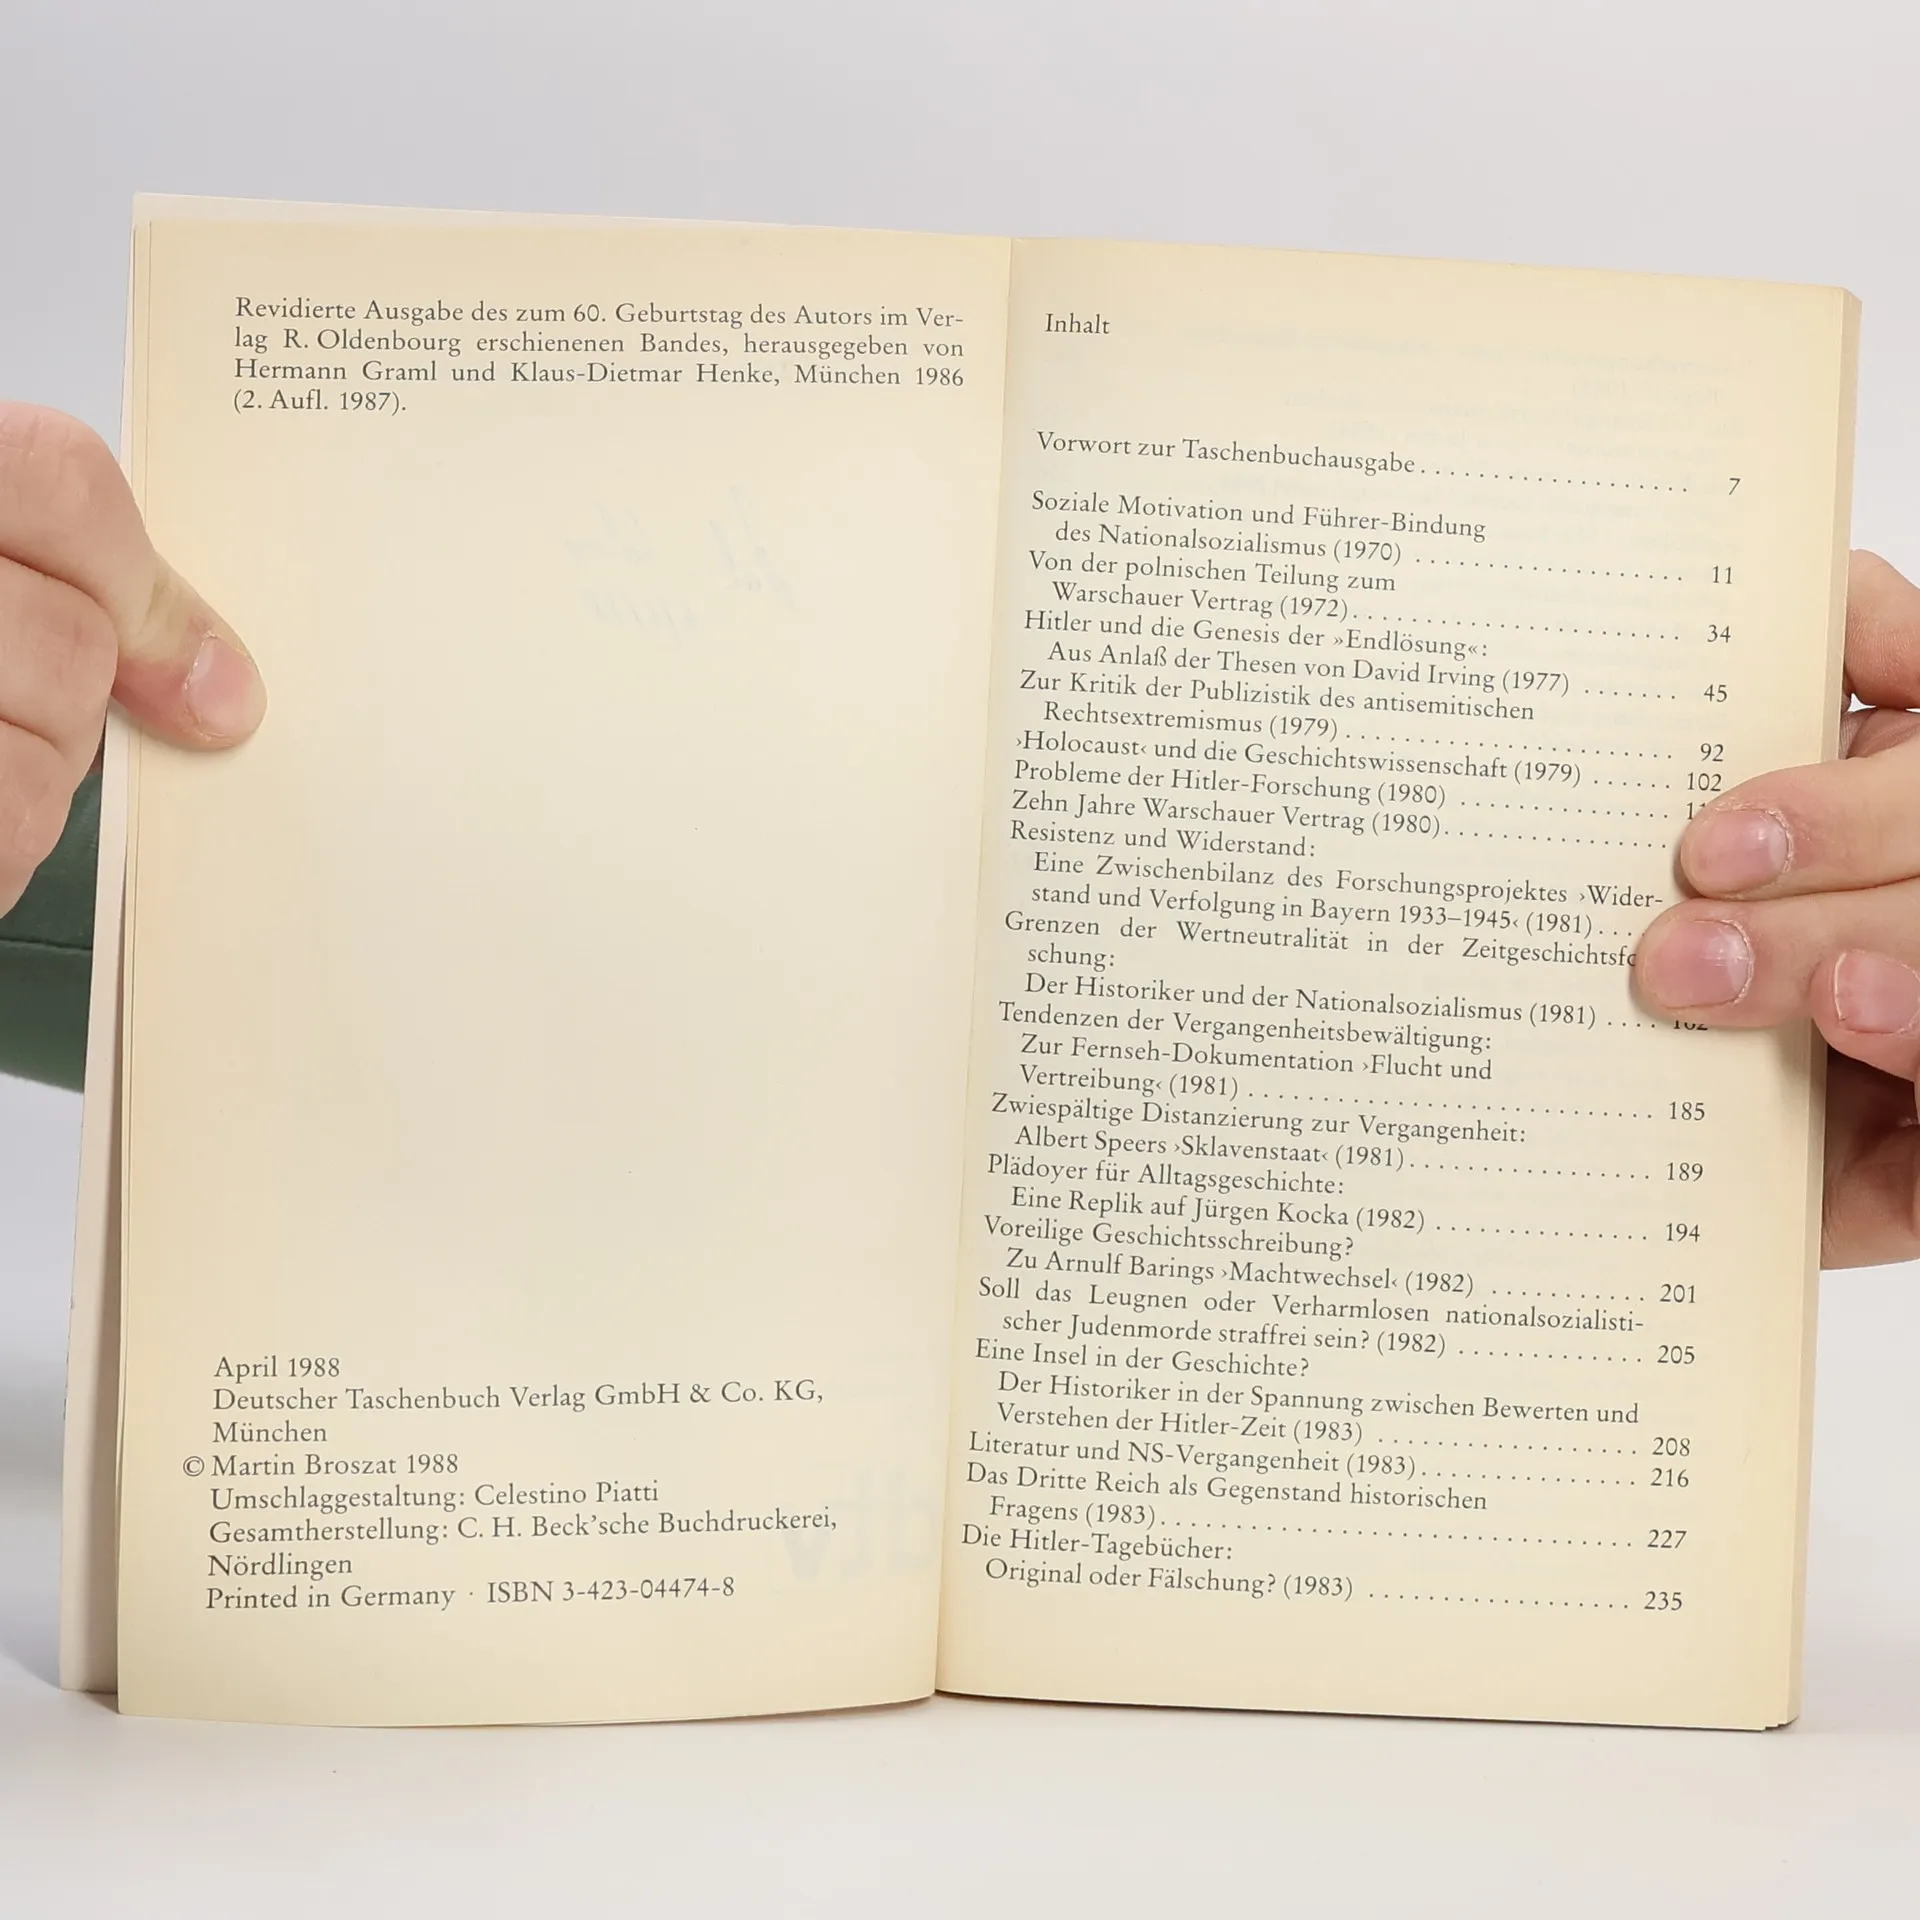 Revidierte Ausgabe des zum 60. Geburtstag des Autors im Ver-
lag R. Oldenbourg erschienenen Bandes, herausgegeben von
Hermann Graml und Klaus-Dietmar Henke, München 1986
(2. Aufl. 1987).
April 1988
Deutscher Taschenbuch Verlag GmbH & Co. KG,
München
© Martin Broszat 1988
Umschlaggestaltung: Celestino Piatti
Gesamtherstellung: C. H. Beck'sche Buchdruckerei,
Nördlingen
Printed in Germany · ISBN 3-423-04474-8
Inhalt
Vorwort zur Taschenbuchausgabe . . . . . . . . . . . . . . . . . . 7
Soziale Motivation und Führer-Bindung
des Nationalsozialismus (1970) . . . . . . . . . . . . . . . . . . 11
Von der polnischen Teilung zum
Warschauer Vertrag (1972) . . . . . . . . . . . . . . . . . . . . . 34
Hitler und die Genesis der »Endlösung«:
Aus Anlaß der Thesen von David Irving (1977) . . . . . . . 45
Zur Kritik der Publizistik des antisemitischen
Rechtsextremismus (1979) . . . . . . . . . . . . . . . . . . . . . 92
›Holocaust‹ und die Geschichtswissenschaft (1979) . . . . . . 102
Probleme der Hitler-Forschung (1980) . . . . . . . . . . . . . .
Zehn Jahre Warschauer Vertrag (1980) . . . . . . . . . . . . . .
Resistenz und Widerstand:
Eine Zwischenbilanz des Forschungsprojektes ›Wider-
stand und Verfolgung in Bayern 1933–1945‹ (1981) . . . .
Grenzen der Wertneutralität in der
schung:
Der Historiker und der Nationalsozialismus (1981) . . . .
Tendenzen der Vergangenheitsbewältigung:
Zur Fernseh-Dokumentation ›Flucht und
Vertreibung‹ (1981) . . . . . . . . . . . . . . . . . . . . . . . . . . . 185
Zwiespältige Distanzierung zur Vergangenheit:
Albert Speers ›Sklavenstaat‹ (1981) . . . . . . . . . . . . . . . . 189
Plädoyer für Alltagsgeschichte:
Eine Replik auf Jürgen Kocka (1982) . . . . . . . . . . . . . . 194
Voreilige Geschichtsschreibung?
Zu Arnulf Barings ›Machtwechsel‹ (1982) . . . . . . . . . . . 201
Soll das Leugnen oder Verharmlosen nationalsozialisti-
scher Judenmorde straffrei sein? (1982) . . . . . . . . . . . . . 205
Eine Insel in der Geschichte?
Der Historiker in der Spannung zwischen Bewerten und
Verstehen der Hitler-Zeit (1983) . . . . . . . . . . . . . . . . . 208
Literatur und NS-Vergangenheit (1983) . . . . . . . . . . . . . . 216
Das Dritte Reich als Gegenstand historischen
Fragens (1983) . . . . . . . . . . . . . . . . . . . . . . . . . . . . . . 227
Die Hitler-Tagebücher:
Original oder Fälschung? (1983) . . . . . . . . . . . . . . . . . . 235